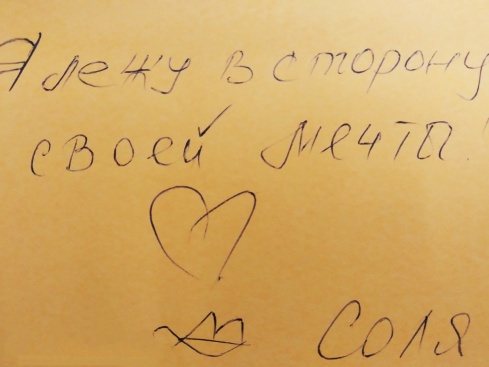 Я лежу в сторону
своей мечты!
Соля